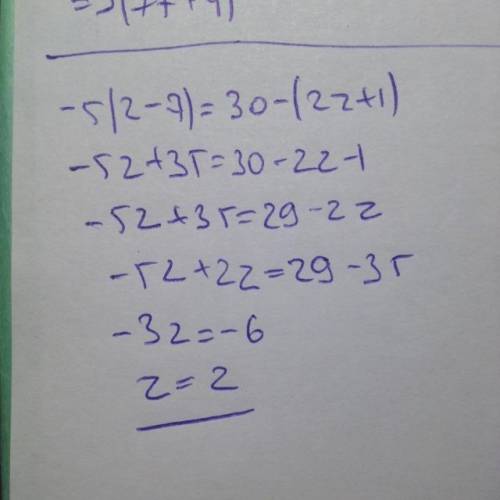 -5(z-7)=30-(2z+1)
-5z+35=30-2z-1
-5z+35=29-2z
-5z+2z=29-35
-3z=-6
z=2